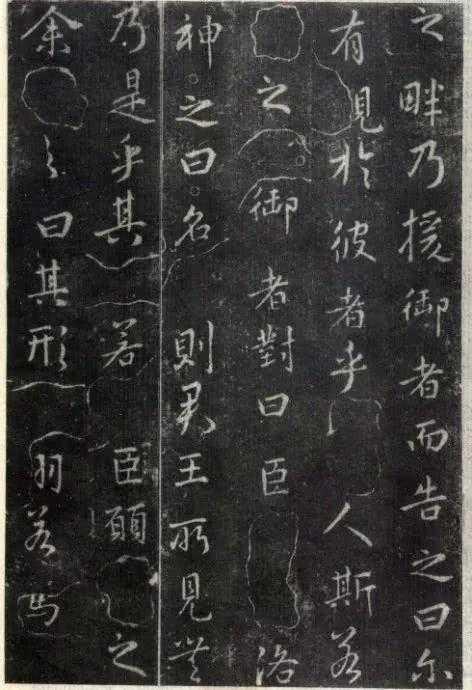 之畔乃援御者而告之曰尔
有見於彼者乎人斯若
之御者對曰臣洛
神之曰名則君王所見無
乃是乎其若臣願之
余之曰其形羽若馬